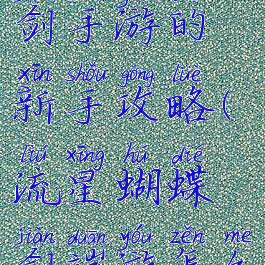 剑手游的
xīn shǒu gōng lüè
新手攻略(
liú xīng hú dié
流星蝴蝶
jiàn duān yóu zěn me
剑端游怎么